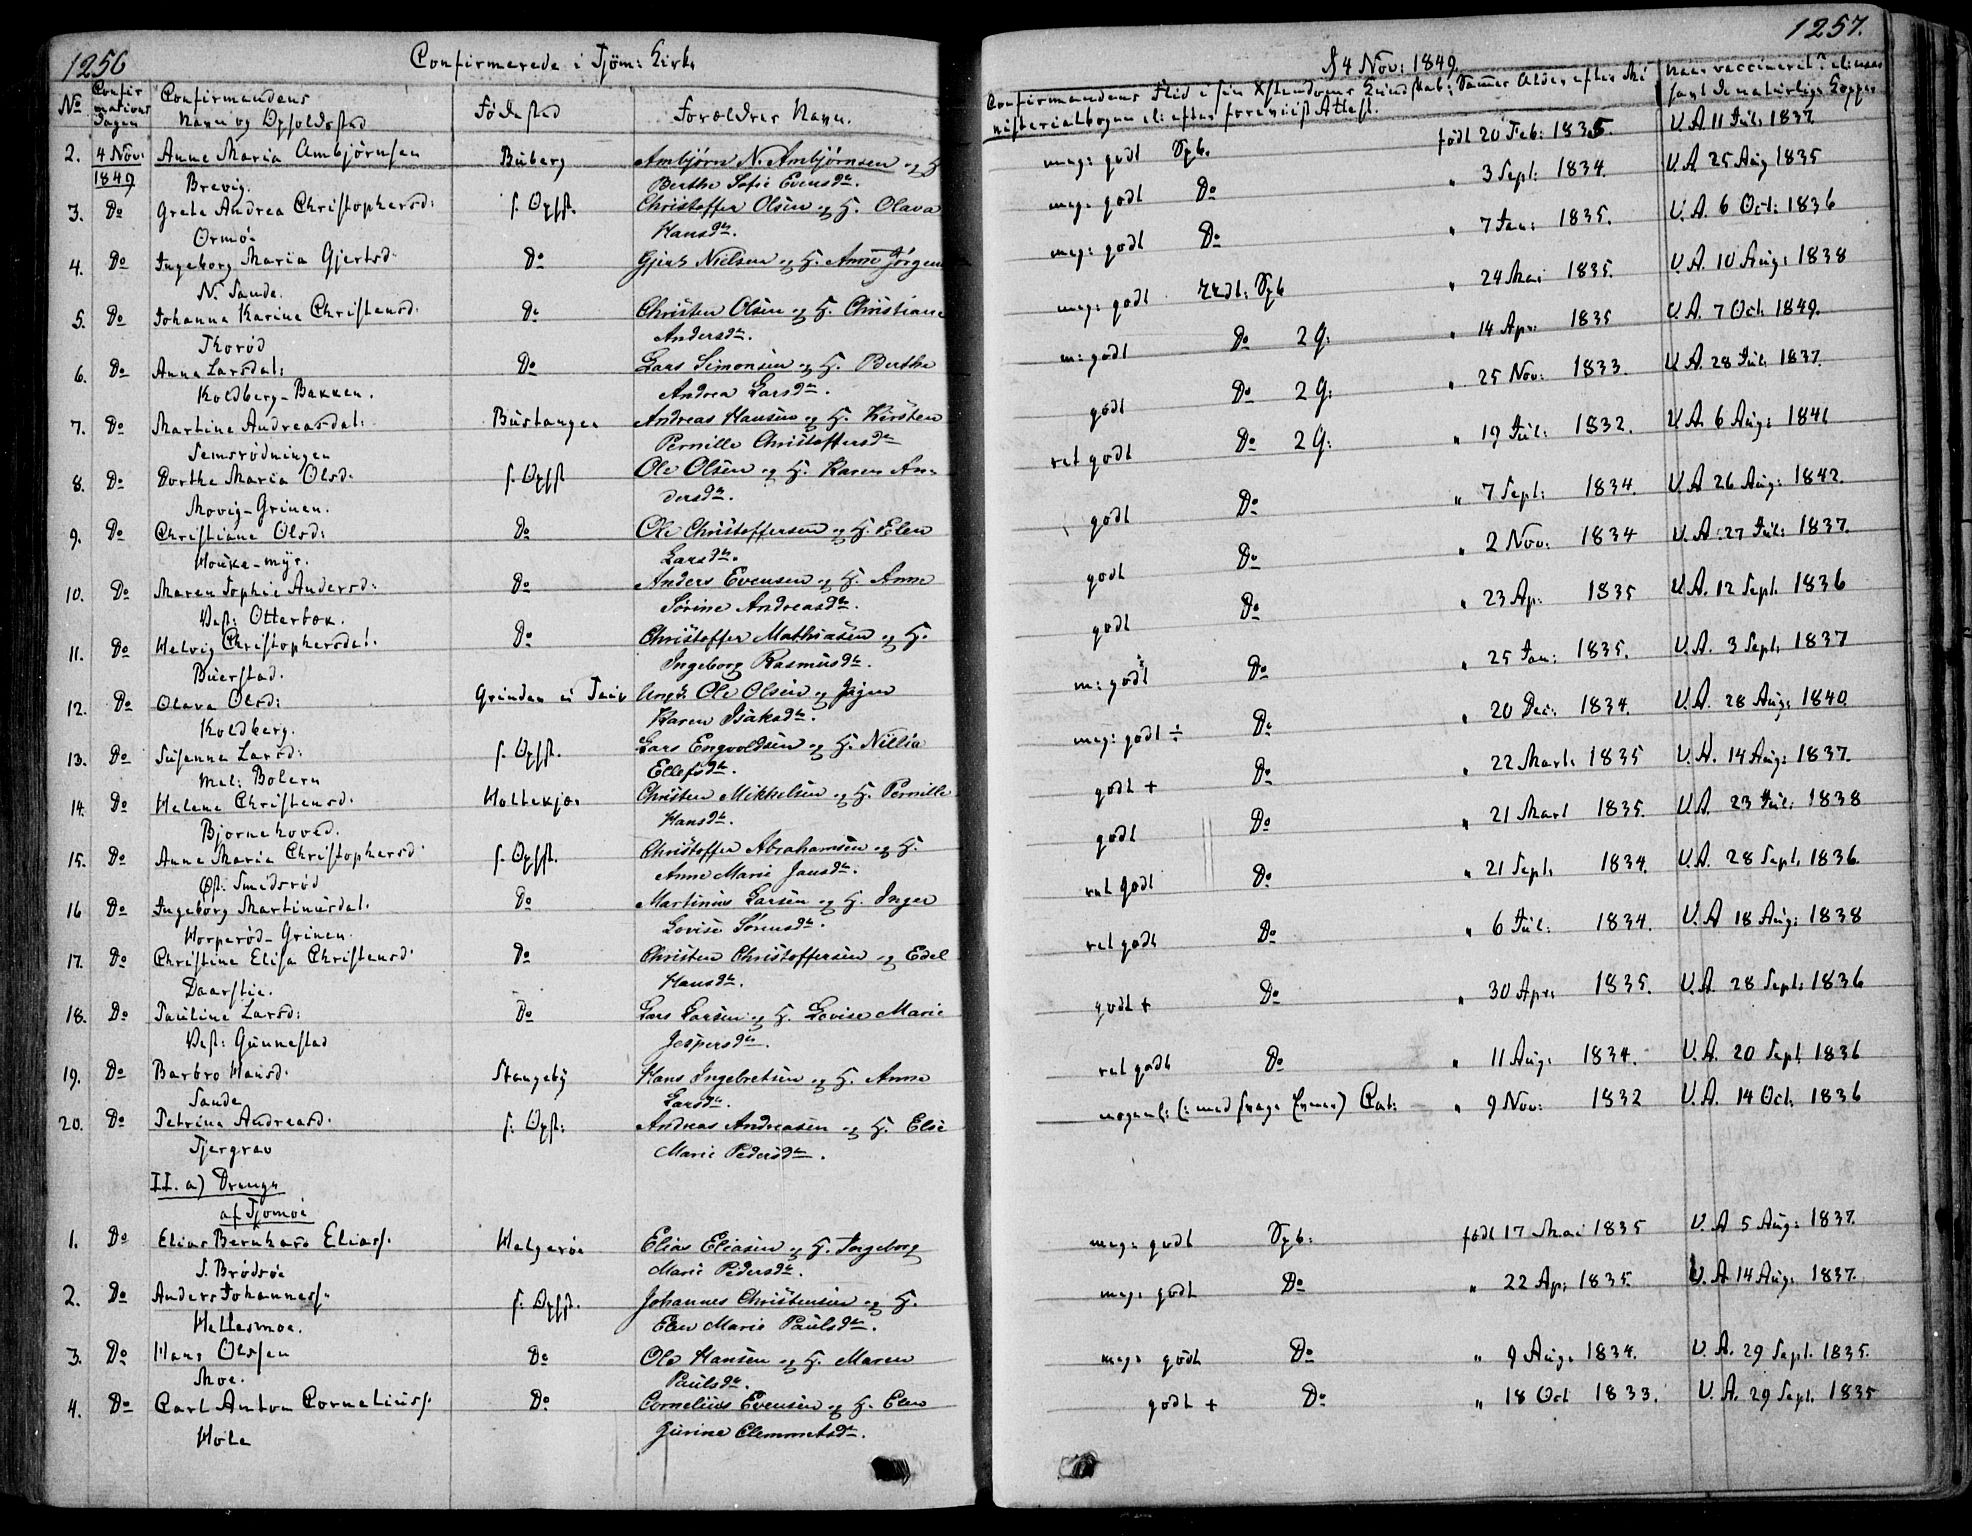 1256
Confirmerede i Tjöm: Kirke
No
Confirmations Dagen
Confirmandens
Navn og Opholdssted
Födested
Forældres Navn.
2. 4 Nov: 1849 Anne Maria Ambjörnsen Buberg Ambjörn N. Ambjörnsen og H.
Brevig. Berthe Sofie Evensdtr.
3. Do Grete Andrea Christophersd: s. Opst. Christoffer Olsen og H. Olava
Ormö. Hansdtr.
4. Do Ingeborg Maria Gjertsd. Do Gjert Nielsen og H. Anne Jörgens
N. Sande.
5. Do Johanna Karine Christensd. Do Christen Olsen og H. Christiane
Thoröd Andersdtr.
6. Do Anna Larsdat: Do Lars Simonsen og H. Berthe
Koldberg-Bakken. Andrea Larsdtr.
7. Do Martine Andreasdat: Bustangen Andreas Hansen og H. Kirsten
Semsrödningen Pernille Christoffersdtr
8. Do Dorthe Maria Olsd. s. Opst Ole Olsen og H. Karen An-
Movig-Grinen. dersdtr.
9. Do Christiane Olsd: Do Ole Christoffersen og H. Elen
Houke-myr. Larsdtr.
10. Do Maren Sophie Andersd: Do Anders Evensen og H. Anne
Vest: Otterbek. Sörine Andreasdtr.
11. Do Helvig Christophersdat. Do Christoffer Mathiasen og H.
Buerstad. Ingeborg Rasmusdtr.
12. Do Olava Olsd: Grinden Ungk. Ole Olsen og Pigen
Koldberg. Karen Isaksdtr.
13. Do Susanna Larsd: s. Opst. Lars Engvoldsen og H. Nillia
Mel: Bolern Ellefsdtr.
14. Do Helene Christensd. Holtekjæ. Christen Mikkelsen og H. Pernille
Bjornehoved. Hansdtr.
15. Do Anne Maria Christophersd. s. Opst. Christoffer Abrahamsen og H.
Öst: Smidsröd Anne Marie Jansdtr.
16 Do Ingeborg Martinusdat. Do Martinius Larsen og H. Inger
Horperöd-Grinen. Lovise Sörensdtr.
17. Do Christine Elisa Christensd. Do Christen Christoffersen og Edel
Daarstie. Hansdtr.
18. Do Pauline Larsd: Do Lars Larsen og H. Lovise Marie
Vest: Gunnestad Jespersdtr.
19. Do Barbro Hansd. Stangeby Hans Ingebretsen og H. Anne
Sande Larsdtr.
20. Do Petrine Andreasd. s. Opst: Andreas Andreasen og H. Elie
Tjergrav Marie Pedersdtr.
II. a) Drenge
af Tjomöe
1. Do Elias Bernhard Eliass. Helgeröe Elias Eliasen og H. Ingeborg
S. Brödsöe Marie Pedersdtr.
2. Do Anders Johanness. s. Opst. Johannes Christensen og H.
Hellesmoe. Elen Marie Paulsdtr.
3. Do Hans Olssen Do Ole Hansen og H. Maren
Moe. Paulsdtr.
4. Do Carl Anton Corneliuss. Do Cornelius Evensen og H. Elen
Hole Gurine Clemmetsdtr.
1257.
d 4 Nov: 1849.
Confirmandens Flid i sin Xstendoms Kundskab: Sammes Alder efter Mi
nisterialbogen el: efter foreviist Attest.
Naar vaccineret
havt de naturlige Kopper
meg: godt Spb. födt 20 Feb: 1835. V. A. 11 Jul: 1837.
meg: godt Do " 3 Sept: 1834. V. A. 25 Aug 1835
meg: godt Do " 7 Jan: 1835. V. A. 6 Oct: 1836
meg: godt Spb " 24 Mai 1835. V. A. 10 Aug: 1838
m: godt Do 2 G: " 14 Apr: 1835 V. A. 7 Oct: 1849.
godt Do 2 G: " 25 Nov: 1833. V. A. 28 Jul: 1837.
ret godt Do 2 G: " 19 Jul: 1832. V. A. 6 Aug: 1841
godt Do " 7 Sept: 1834. V. A. 26 Aug: 1842.
godt Do " 2 Nov: 1834 V. A. 27 Jul: 1837.
godt Do " 23 Ap: 1835 V. A. 12 Sept. 1836
m: godt Do " 25 Jan: 1835. V. A. 3 Sept: 1837
meg: godt ÷ Do " 20 Dec: 1834. V. A. 28 Aug: 1840.
godt + Do " 22 Mart: 1835 V. A. 14 Aug: 1837.
godt Do " 21 Mart 1835. V. A. 23 Jul: 1838
ret godt Do " 21 Sept. 1834. V. A. 28 Sept. 1836.
ret godt Do " 6 Jul: 1834. V. A 18 Aug: 1838
godt + Do " 30 Apr: 1835. V. A. 28 Sept: 1836
ret godt Do " 11 Aug: 1834. V. A. 20 Sept 1836
nogenl: (: med svage Evner) Cat: " 9 Nov: 1832 V. A. 14 Oct: 1836
meg: godt Spb: födt 17 Mai 1835 V. A 5 Aug: 1837.
meg: godt Do " 22 Ap: 1835. V. A 14 Aug: 1837.
meg: godt Do " 9 Aug: 1834. V. A. 29 Sept. 1835.
godt + Do " 18 Oct 1833. V. A. 29 Sept. 1835